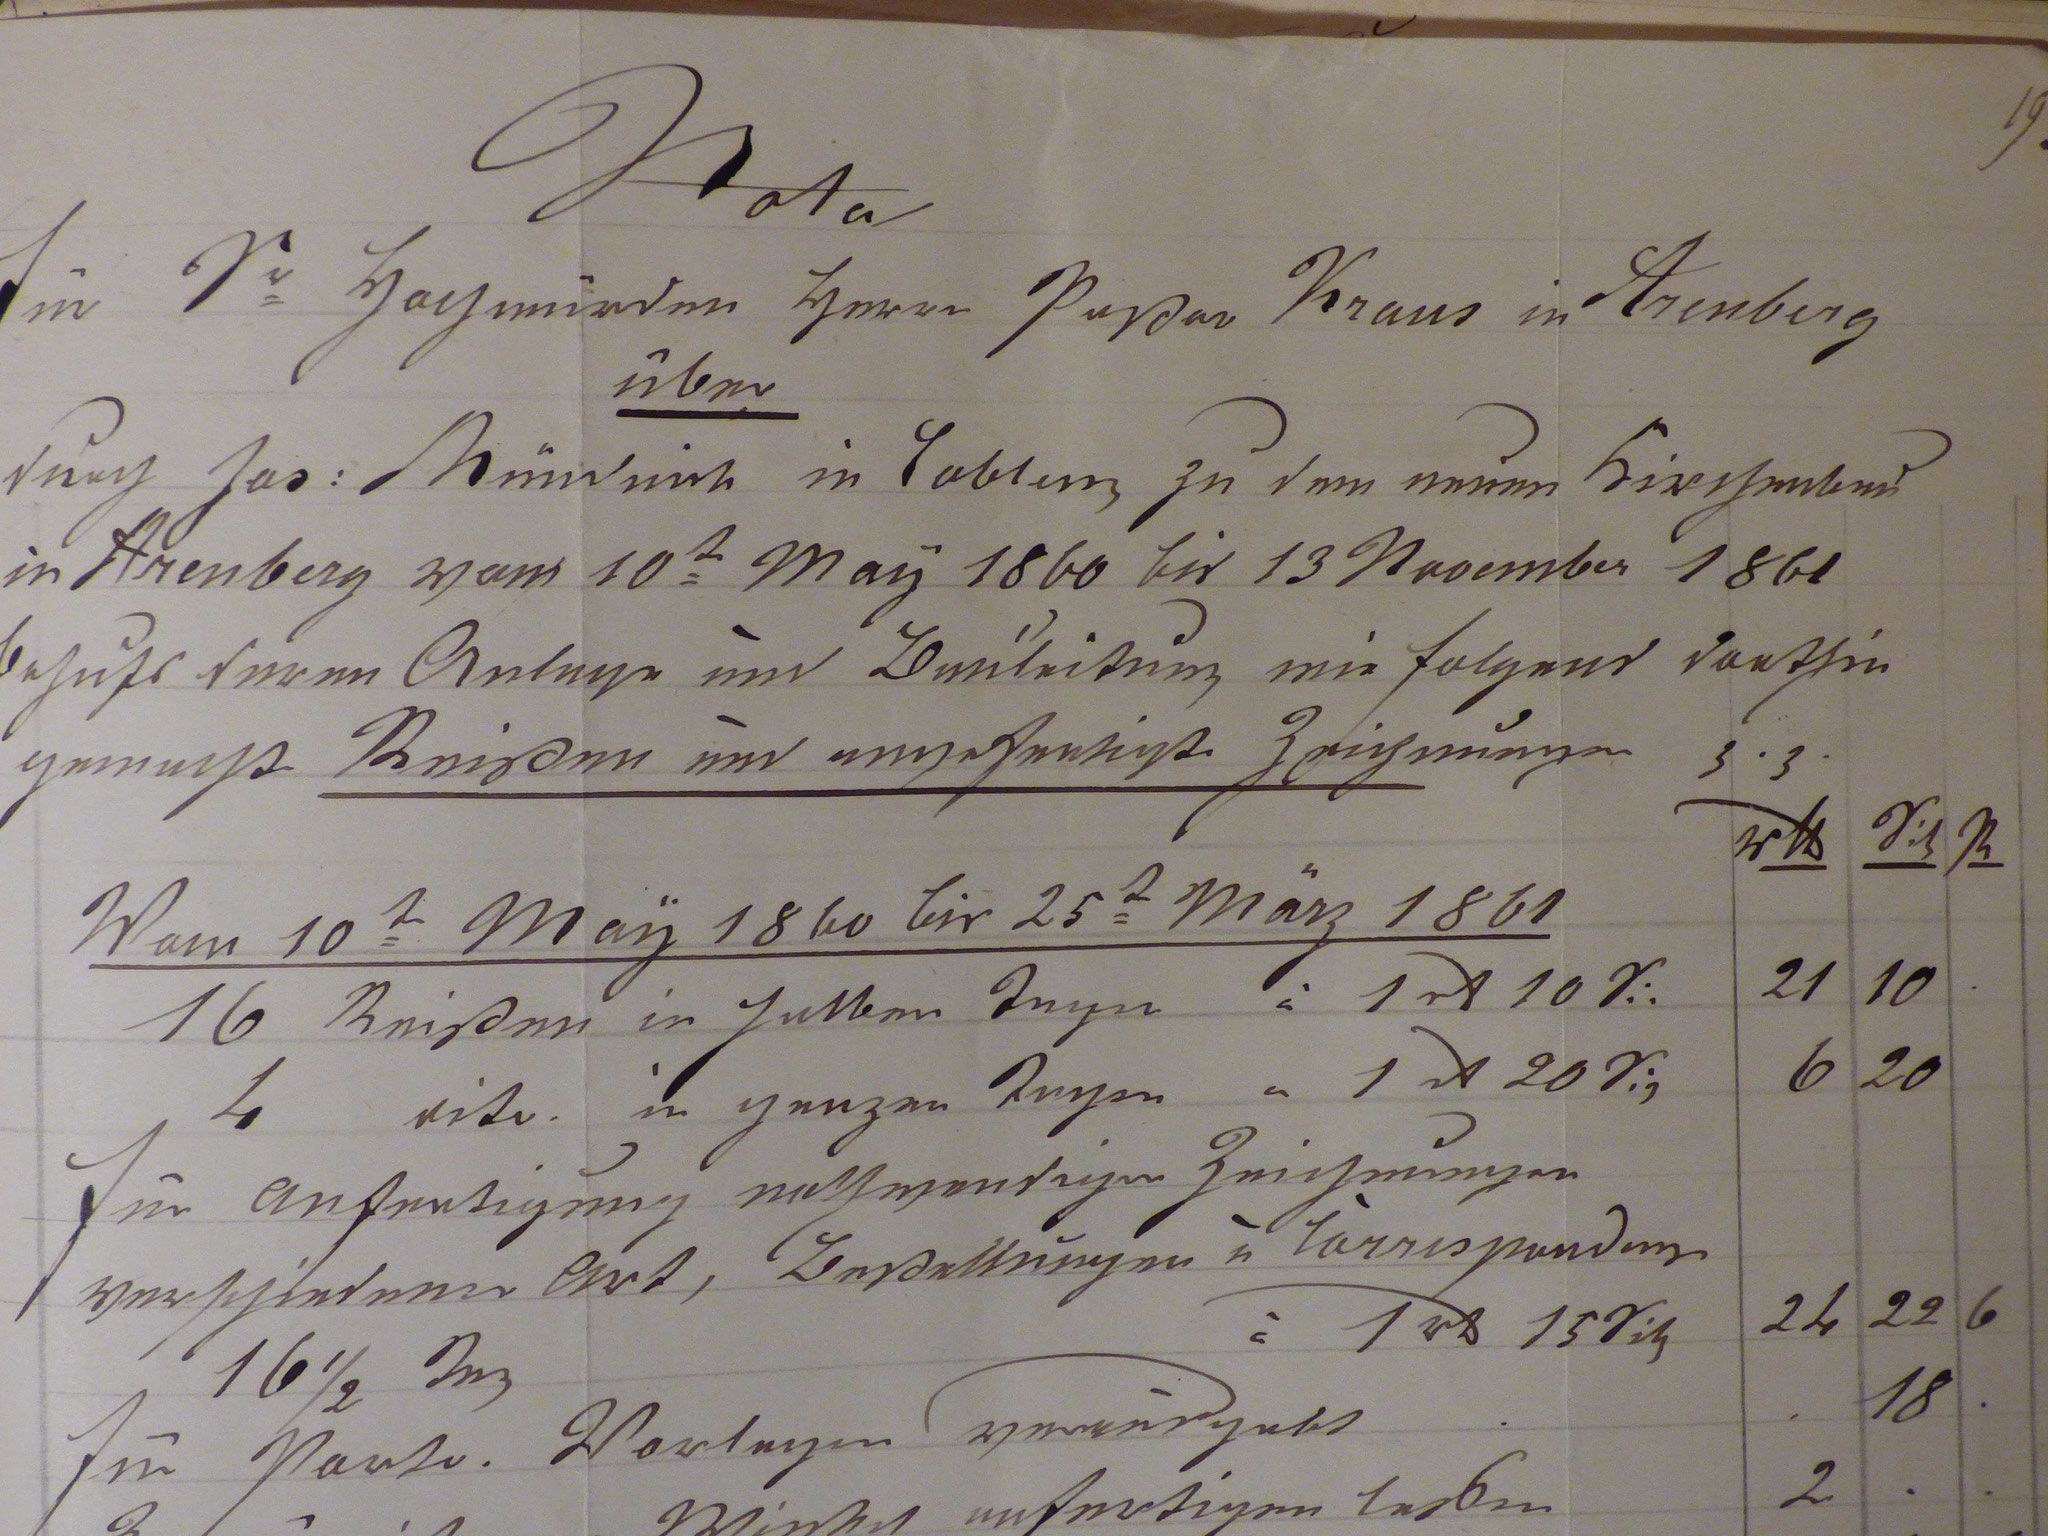 19
Nota
Für Sr Hochwürden Herrn Pastor Kraus in Arenberg
über
durch Jos: Mündnich in Coblenz zu dem neuen Kirchenbau
in Arenberg vom 10t May 1860 bis 13 November 1861
behufs deren Anlage und Bauleitung wie folgend dorthin
gemachte Reißen und angefertigte Zeichnungen z. z.
rth Slg Pf
Vom 10t May 1860 bis 25t März 1861
16 Reißen in halben Tagen à 1 rt 10 Sg. 21 10 .
4 dito. in ganzen Tagen " 1 rt 20 Slg 6 20
Für Anfertigung nothwendiger Zeichnungen
verschiedener Art, Bestellungen u Correspondenz
16 1/2 Tag à 1 rt 15 Slg 24 22 6
Für Porto. Vorlagen verausgabt . . 18 .
Winkel anfertigen laßen 2 . .